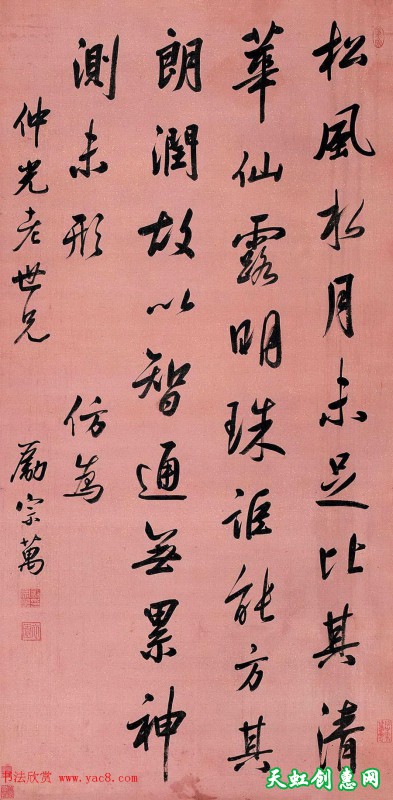 松風水月未足比其清
華仙露明珠詎能方其
朗潤故以智通無累神
測未形
仲光老世兄
仿為
勵宗萬
书法欣赏 www.yac8.com
天虹创惠网